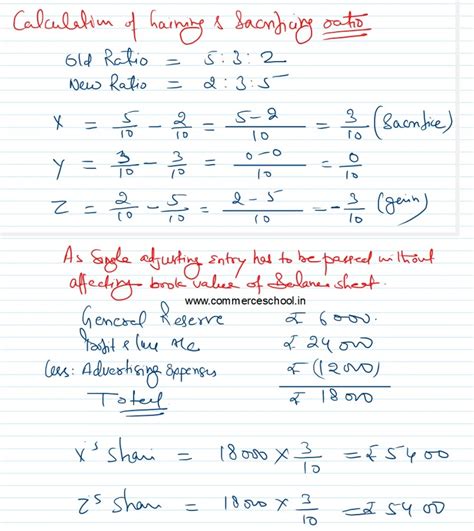 Calculation of Gaining & Sacrificing ratio
Old Ratio = 5:3:2
New Ratio = 2:3:5
X = 5/10 - 2/10 = 5-2/10 = 3/10 (Sacrifice)
Y = 3/10 - 3/10 = 0-0/10 = 0/10
Z = 2/10 - 5/10 = 2-5/10 = -3/10 (gain)
As Single adjusting entry has to be passed without
affecting book value of Balance sheet.
www.commerceschool.in
General Reserve ₹ 6000.
Profit & Loss A/c ₹ 24000
Less: Advertising Expenses ₹ (12000)
Total ₹ 18000
X's Share = 18000 × 3/10 = ₹ 5400
Z's Share = 18000 × 3/10 = ₹ 5400